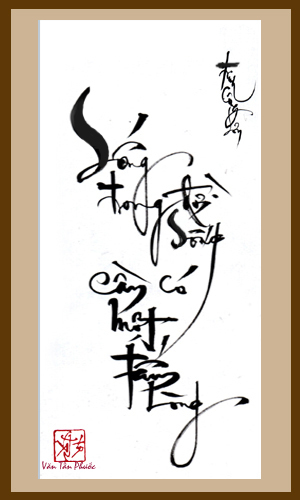 Trịnh
Công
Sơn
Sống
trong đời
sống
cần có
một
tấm
lòng
Văn Tấn Phước